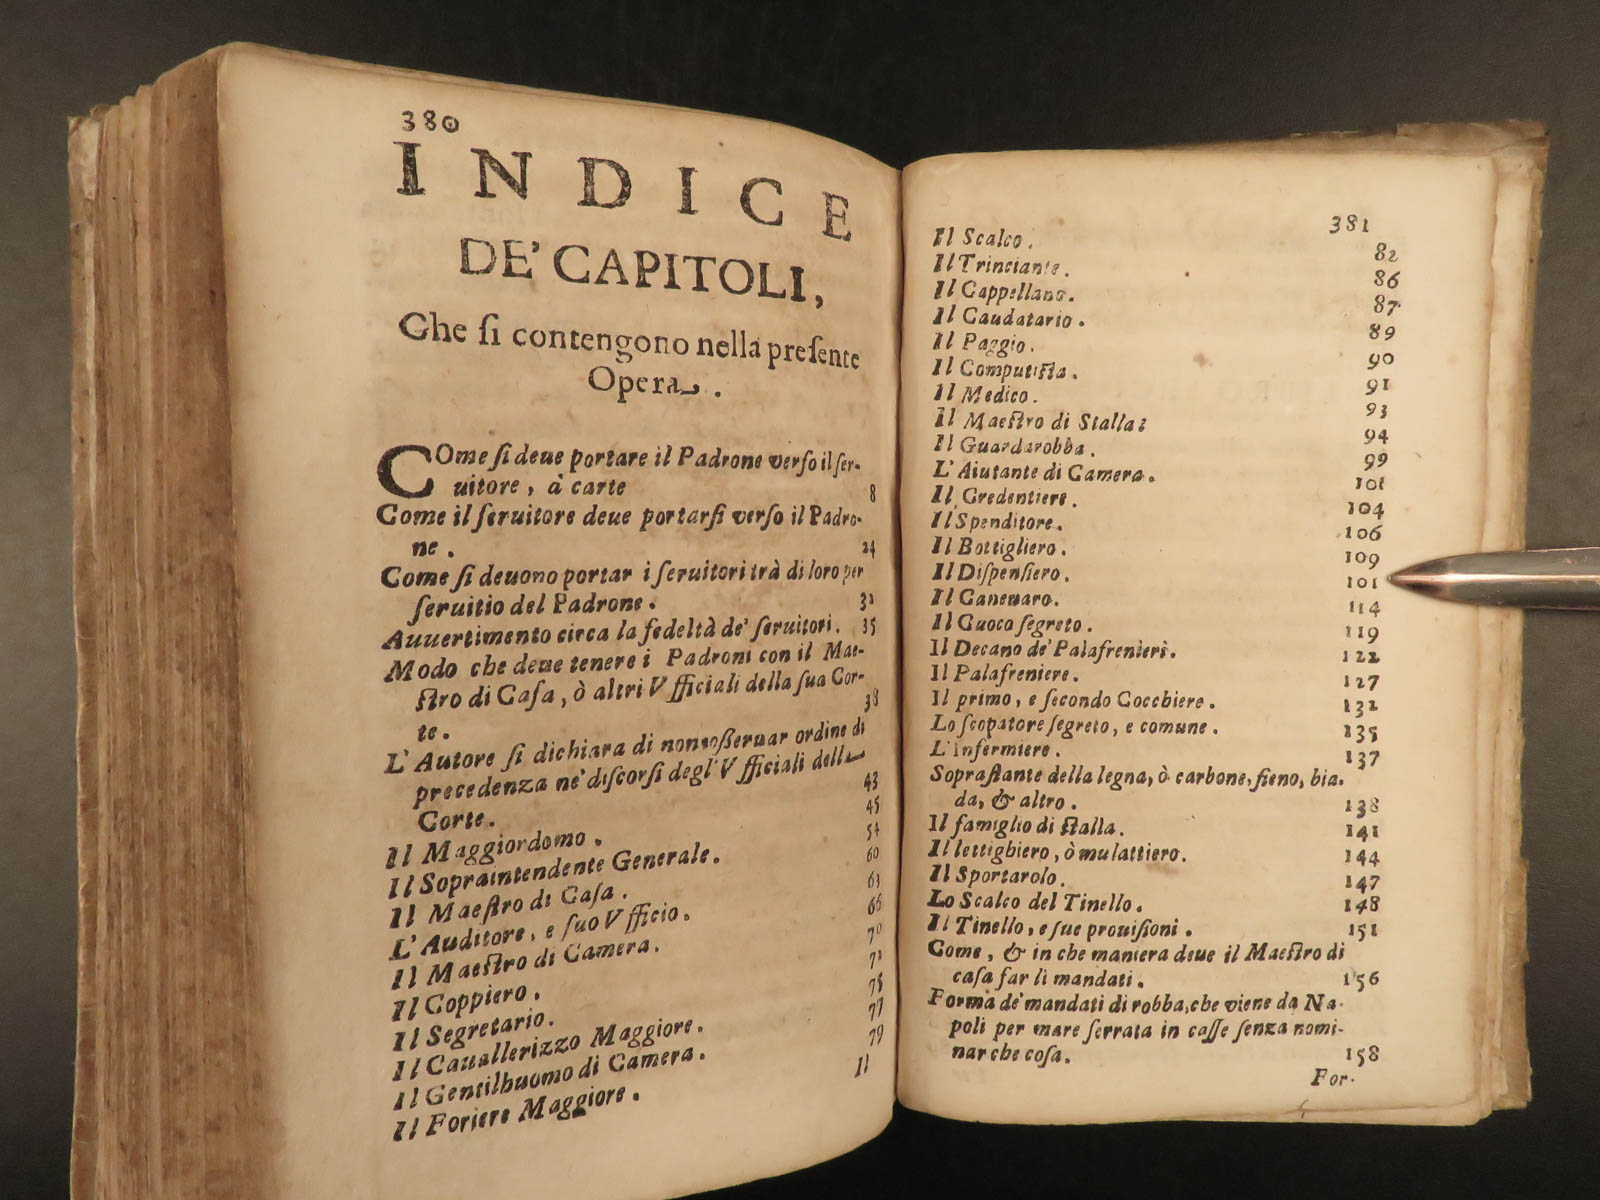 380
INDICE
DE' CAPITOLI,
Che ſi contengono nella preſente
Opera.
COme ſi deue portare il Padrone verſo il ſer-
uitore, à carte 8
Come il ſeruitore deue portarſi verſo il Padro-
ne. 24
Come ſi deuono portar i ſeruitori trà di loro per
ſeruitio del Padrone. 32
Auuertimento circa la fedeltà de' ſeruitori. 35
Modo che deue tenere i Padroni con il Mae-
ſtro di Caſa, ò altri Vfficiali della ſua Cor-
te. 38
L'Autore ſi dichiara di non oſſeruar ordine di
precedenza nè diſcorſi degl' Vfficiali dell
Corte. 43
Il Maggiordomo. 45
Il Sopraintendente Generale. 54
Il Maeſtro di Caſa. 60
L'Auditore, e ſuo Vfficio. 63
Il Maeſtro di Camera. 66
Il Coppiero. 70
Il Segretario. 72
Il Cauallerizzo Maggiore. 75
Il Gentilhuomo di Camera. 77
Il Foriere Maggiore. 79
Il
381
Il Scalco. 82
Il Trinciante. 86
Il Cappellano. 87
Il Caudatario. 89
Il Paggio. 90
Il Computiſta. 91
Il Medico. 93
Il Maeſtro di Stalla: 94
Il Guardarobba. 99
L'Aiutante di Camera. 101
Il Credentiere. 104
Il Spenditore. 106
Il Bottigliero. 109
Il Diſpenſiero. 101
Il Caneuaro. 114
Il Cuoco ſegreto. 119
Il Decano de' Palafrenieri. 122
Il Palafreniere. 127
Il primo, e ſecondo Cocchiere. 132
Lo ſcopatore ſegreto, e comune. 135
L'Infermiere. 137
Sopraſtante della legna, ò carbone, fieno, bia-
da, & altro. 138
Il famiglio di ſtalla. 141
Il lettighiero, ò mulattiero. 144
Il Sportarolo. 147
Lo Scalco del Tinello. 148
Il Tinello, e ſue prouiſioni. 151
Come, & in che maniera deue il Maeſtro di
caſa far li mandati. 156
Forma de' mandati di robba, che viene da Na-
poli per mare ſerrata in caſſe ſenza nomi-
nar che coſa. 158
For-